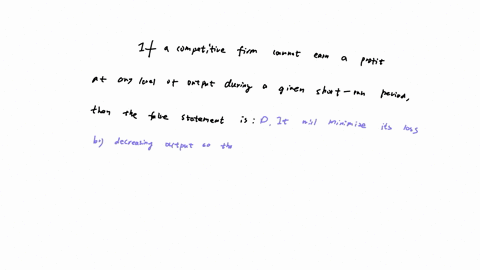 If a competitive firm cannot earn a profit
at any level of output during a given short-run period,
then the false statement is: D. It will minimize its loss
by decreasing output so the